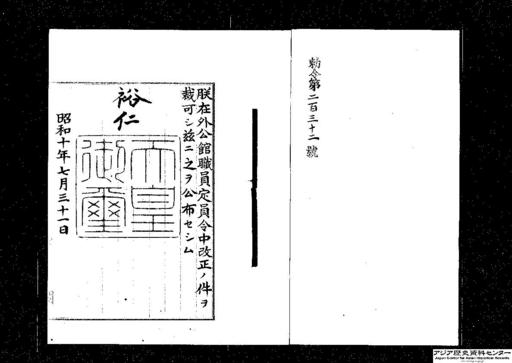 勅令第二百三十二號
朕在外公館職員定員令中改正ノ件ヲ
裁可シ玆ニ之ヲ公布セシム
裕仁
天皇御璽
昭和十年七月三十一日
アジア歴史資料センター
Japan Center for Asian Historical Records